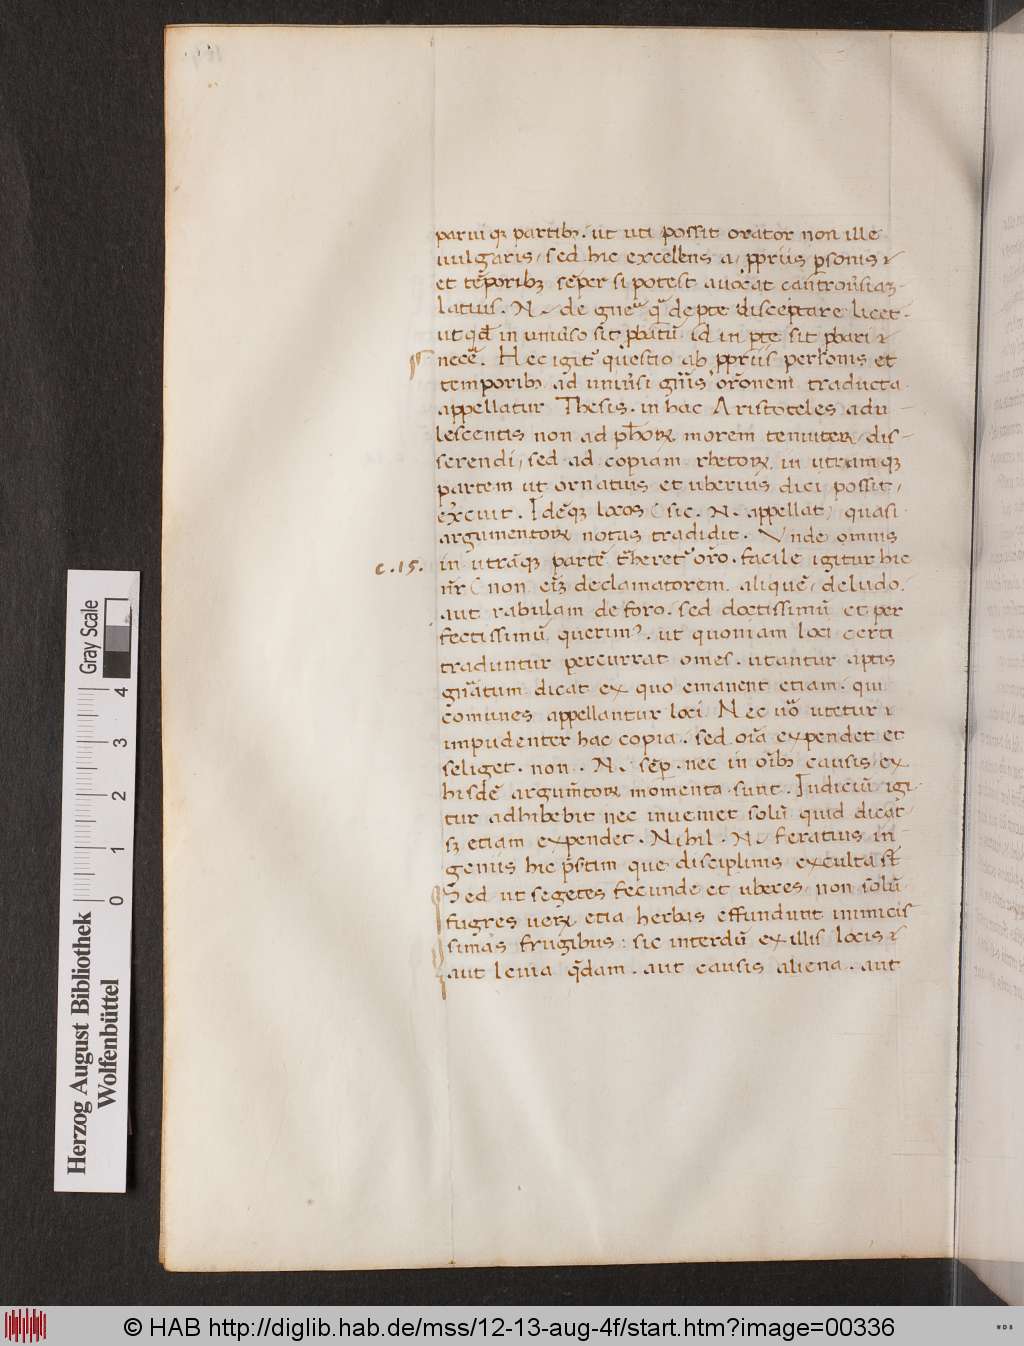 paruiq; partib;. ut uti possit orator non ille
uulgaris, sed hic excellens a, pprijs psonis &
et tẽporib; sẽper si potest auocat cantrouersias
latius. N. de genere qua de pte disceptare licet.
ut qd in uniuso sit pbatũ id in pte sit pbari &
necẽ. Hec igit questio ab pprijs personis et
temporib; ad uniuersi gnis oronem traducta
appellatur Thesis. in hac Aristoteles adu
lescentis non ad phor morem tenuiter dis-
serendi, sed ad copiam rhetor. in utramq;
partem ut ornatius et uberius dici possit,
excuit. Idẽq; locos (sic. N. appellat) quasi
argumentor notas tradidit. Vnde omnis
c.15. in utrãq; partẽ theret oro. facile igitur hic
nr (non eĩ declamatorem aliquẽ de ludo.
aut rabulam de foro. sed doctissimũ et per
fectissimũ querim9. ut quoniam loci certi
traduntur percurrat omes. utantur aptis
gnatum dicat ex quo emanent etiam. qui
comunes appellantur loci Nec uo utetur &
impudenter hac copia. sed oia expendet et
seliget. non. N. sep. nec in oib; causis ex
hisdẽ argumtor momenta sunt. Iudiciũ igi-
tur adhibebit nec inueniet solũ quid dicat
s; etiam expendet. Nihil. N. feratius in-
genijs hic pstim que disciplinis exculta st
Sed ut segetes fecunde et uberes non solũ
fugres uer etia herbas effundunt inimicis
simas frugibus: sic interdũ ex illis locis &
aut leuia qdam. aut causis aliena. aut
Gray Scale
0 1 2 3 4
Herzog August Bibliothek
Wolfenbüttel
© HAB http://diglib.hab.de/mss/12-13-aug-4f/start.htm?image=00336